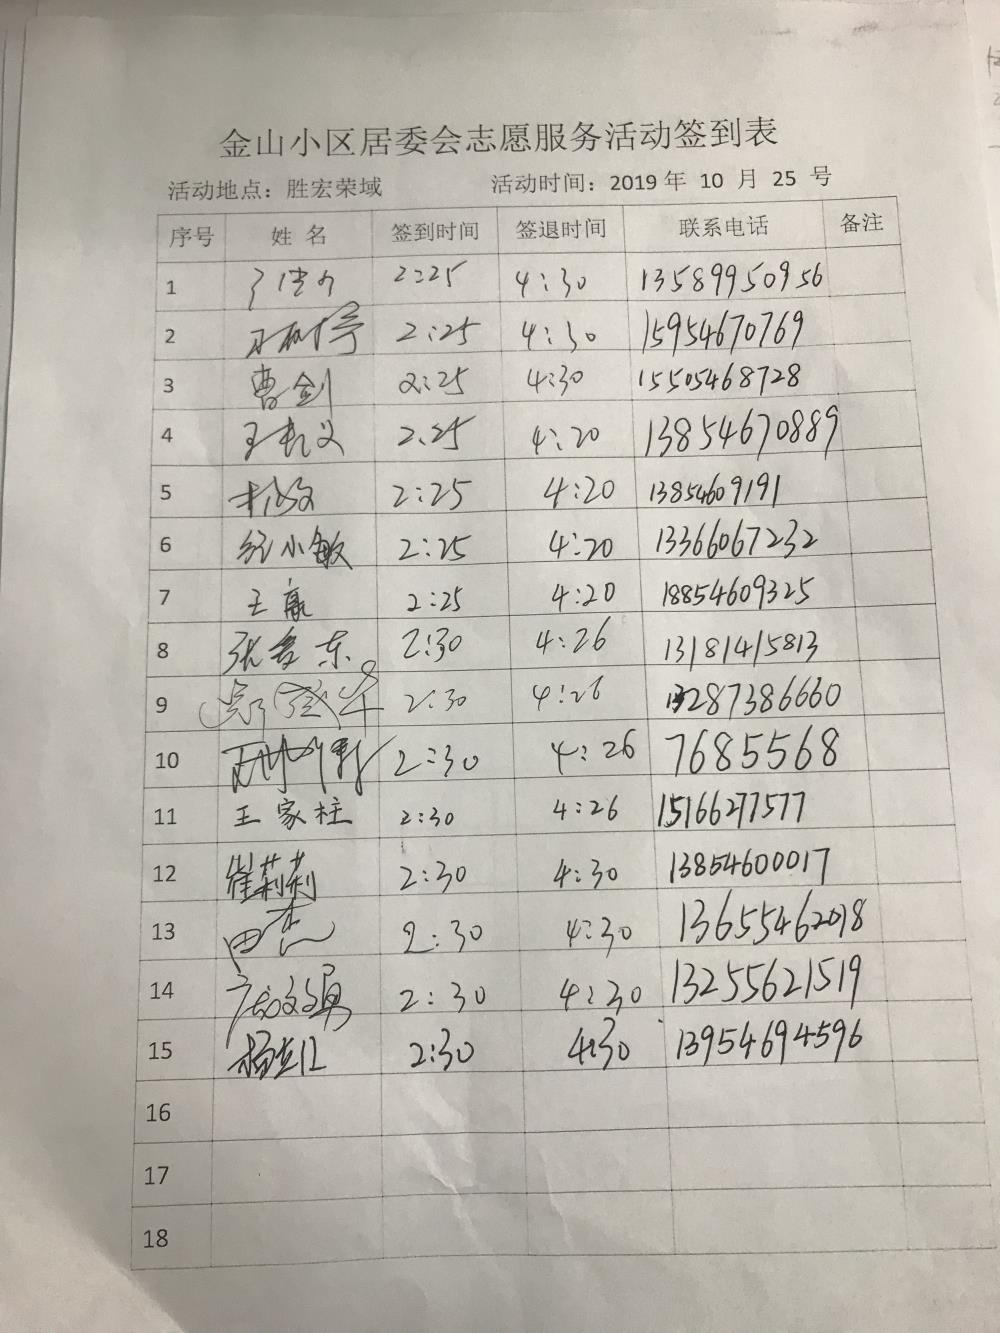 金山小区居委会志愿服务活动签到表
活动地点：胜宏荣域 活动时间：2019年 10 月 25 号
序号 姓 名 签到时间 签退时间 联系电话 备注
1 2:25 4:30 13589950956
2 2:25 4:30 15954670769
3 曹剑 2:25 4:30 15505468728
4 2:25 4:20 13854670889
5 2:25 4:20 13854609191
6 小敏 2:25 4:20 13366067232
7 王赢 2:25 4:20 18854609325
8 张 东 2:30 4:26 13181415813
9 2:30 4:26 13287386660
10 2:30 4:26 7685568
11 王家柱 2:30 4:26 15166277577
12 崔莉莉 2:30 4:30 13854600017
13 田杰 2:30 4:30 13655462018
14 2:30 4:30 13255621519
15 杨 2:30 4:30 13954694596
16
17
18